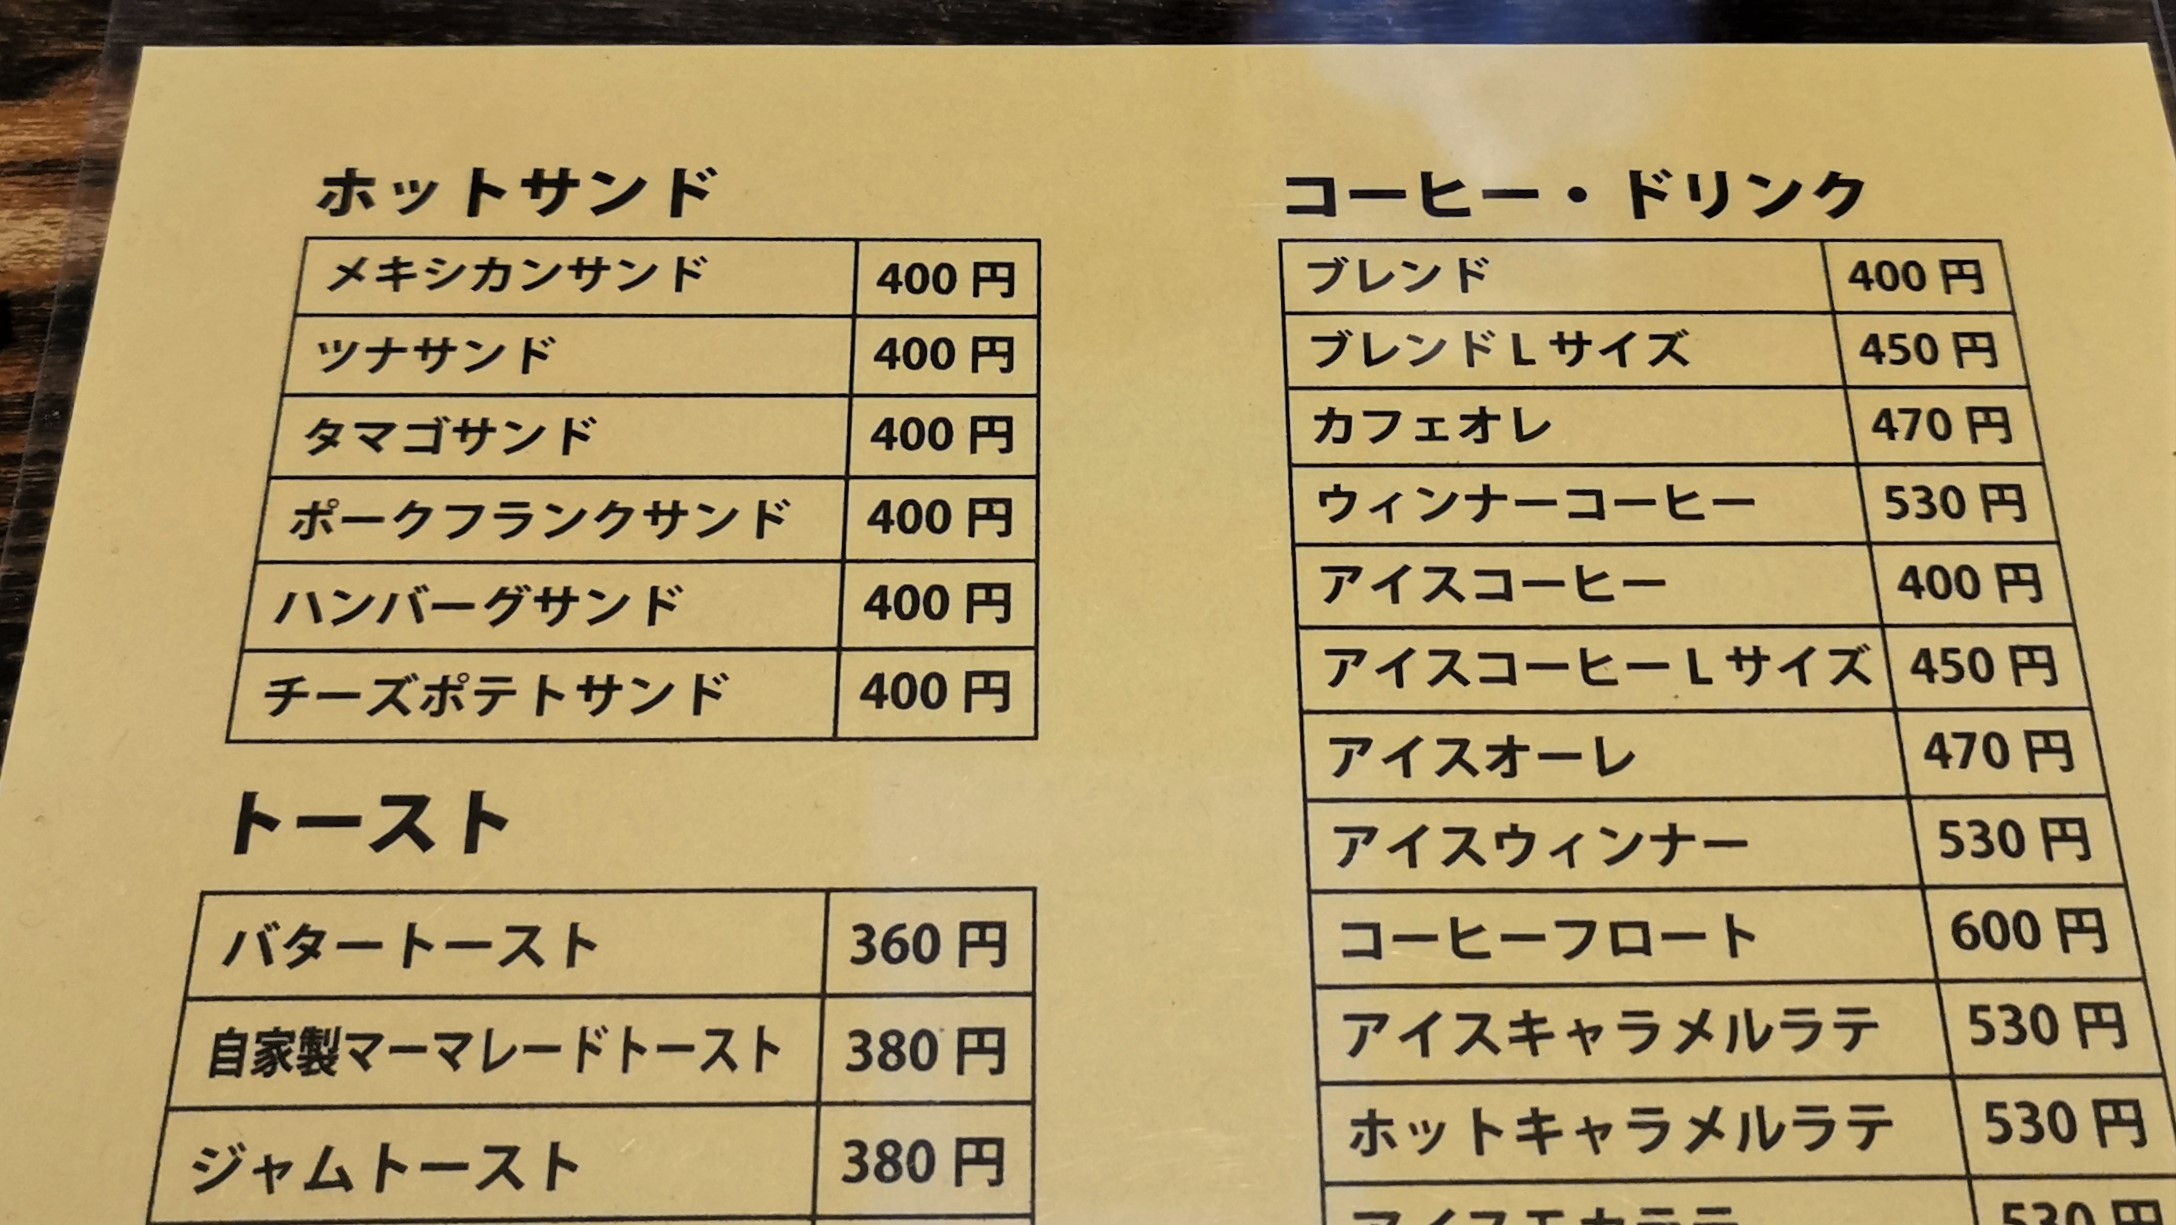 ホットサンド
メキシカンサンド 400 円
ツナサンド 400 円
タマゴサンド 400 円
ポークフランクサンド 400 円
ハンバーグサンド 400 円
チーズポテトサンド 400 円
トースト
バタートースト 360 円
自家製マーマレードトースト 380 円
ジャムトースト 380 円
コーヒー・ドリンク
ブレンド 400 円
ブレンド L サイズ 450 円
カフェオレ 470 円
ウィンナーコーヒー 530 円
アイスコーヒー 400 円
アイスコーヒー L サイズ 450 円
アイスオーレ 470 円
アイスウィンナー 530 円
コーヒーフロート 600 円
アイスキャラメルラテ 530 円
ホットキャラメルラテ 530 円
アイスモカラテ 530 円